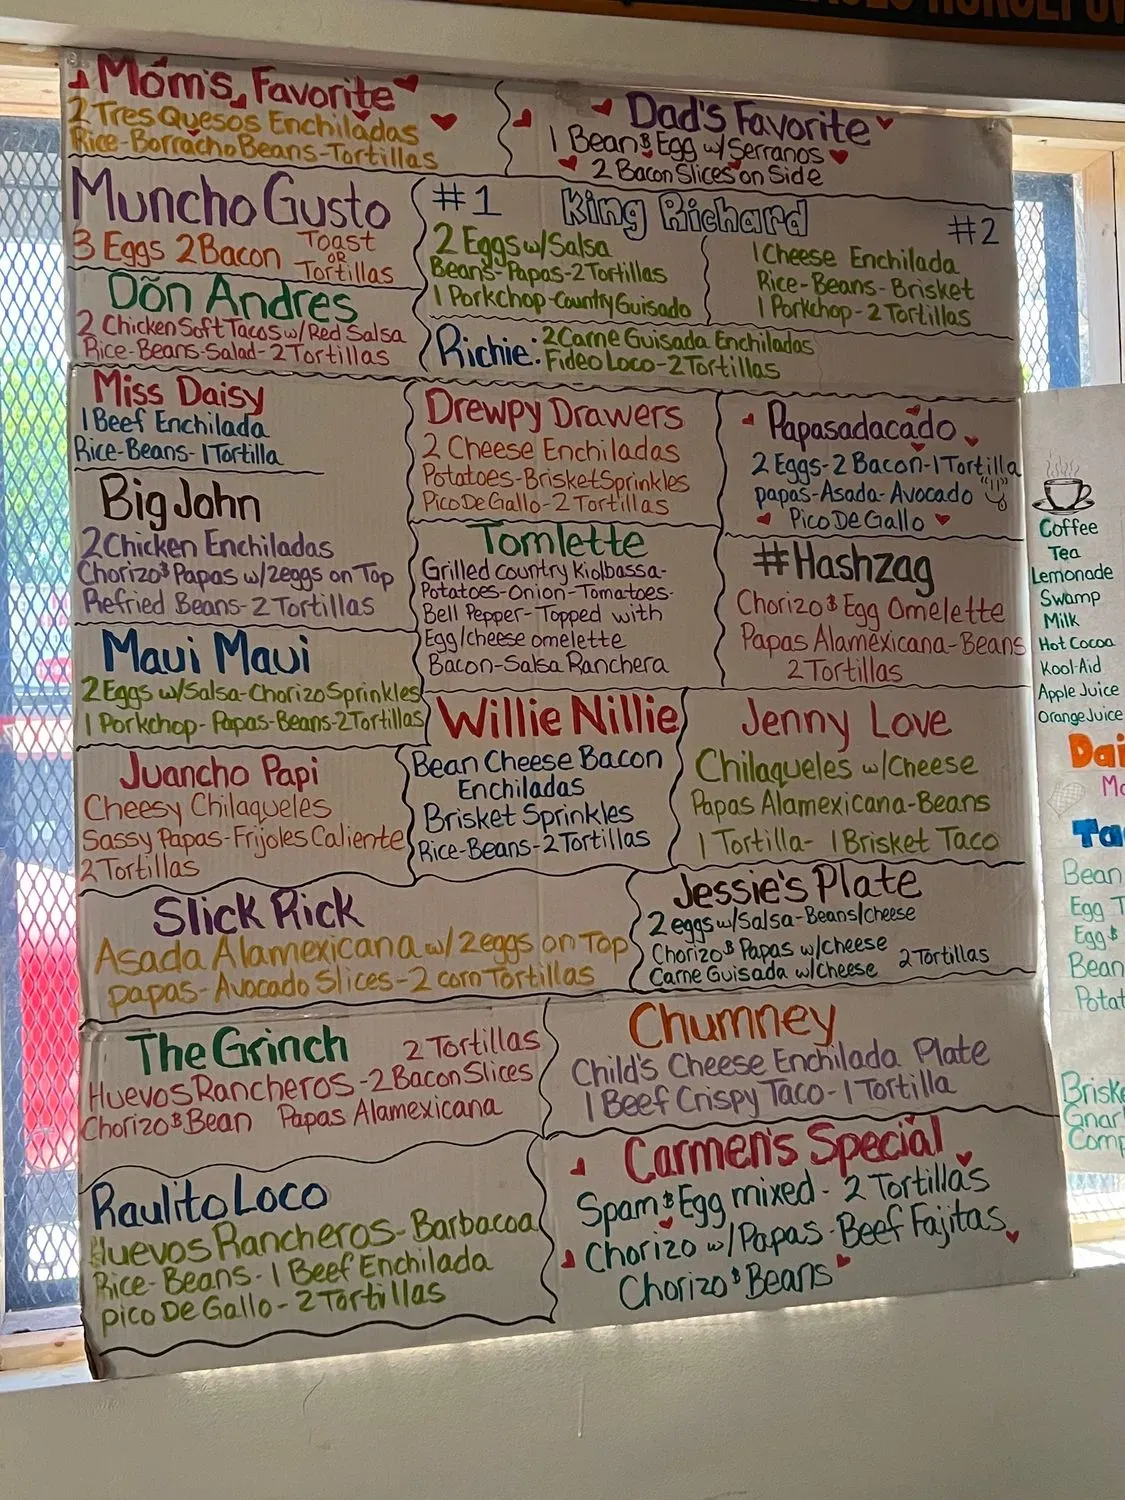 Mom's Favorite
2 Tres Quesos Enchiladas
Rice-Borracho Beans-Tortillas
Dad's Favorite
1 Bean & Egg w/Serranos
2 Bacon Slices on Side
Muncho Gusto
3 Eggs 2 Bacon Toast
OR
Tortillas
#1 King Richard #2
2 Eggs w/Salsa
Beans-Papas-2 Tortillas
1 Porkchop-Country Guisado
1 Cheese Enchilada
Rice-Beans-Brisket
1 Porkchop-2 Tortillas
Don Andres
2 Chicken Soft Tacos w/Red Salsa
Rice-Beans-Salad-2 Tortillas
Richie: 2 Carne Guisada Enchiladas
Fideo Loco-2 Tortillas
Miss Daisy
1 Beef Enchilada
Rice-Beans-1 Tortilla
Drewpy Drawers
2 Cheese Enchiladas
Potatoes-Brisket Sprinkles
Pico De Gallo-2 Tortillas
Papasadacado
2 Eggs-2 Bacon-1 Tortilla
papas-Asada-Avocado
Pico De Gallo
Big John
2 Chicken Enchiladas
Chorizo & Papas w/2eggs on Top
Refried Beans-2 Tortillas
Tomlette
Grilled country Kiolbassa-
Potatoes-Onion-Tomatoes-
Bell Pepper-Topped with
Egg/cheese omelette
Bacon-Salsa Ranchera
#Hashzag
Chorizo & Egg Omelette
Papas Alamexicana-Beans
2 Tortillas
Maui Maui
2 Eggs w/Salsa-Chorizo Sprinkles
1 Porkchop-Papas-Beans-2 Tortillas
Willie Nillie
Bean Cheese Bacon
Enchiladas
Brisket Sprinkles
Rice-Beans-2 Tortillas
Jenny Love
Chilaqueles w/Cheese
Papas Alamexicana-Beans
1 Tortilla-1 Brisket Taco
Juancho Papi
Cheesy Chilaqueles
Sassy Papas-Frijoles Caliente
2 Tortillas
Slick Rick
Asada Alamexicana w/2eggs on Top
papas-Avocado Slices-2 corn Tortillas
Jessie's Plate
2 eggs w/Salsa-Beans/cheese
Chorizo & Papas w/cheese 2 Tortillas
Carne Guisada w/cheese
The Grinch 2 Tortillas
Huevos Rancheros-2 Bacon Slices
Chorizo & Bean Papas Alamexicana
Chumney
Child's Cheese Enchilada Plate
1 Beef Crispy Taco-1 Tortilla
Raulito Loco
Huevos Rancheros-Barbacoa
Rice-Beans-1 Beef Enchilada
pico De Gallo-2 Tortillas
Carmen's Special
Spam & Egg mixed-2 Tortillas
Chorizo w/Papas-Beef Fajitas
Chorizo & Beans
Coffee
Tea
Lemonade
Swamp
Milk
Hot Cocoa
Kool-Aid
Apple Juice
Orange Juice
Dai
Ta
Bean
Egg T
Egg &
Bean
Potat
Briske
Gnar
Comp